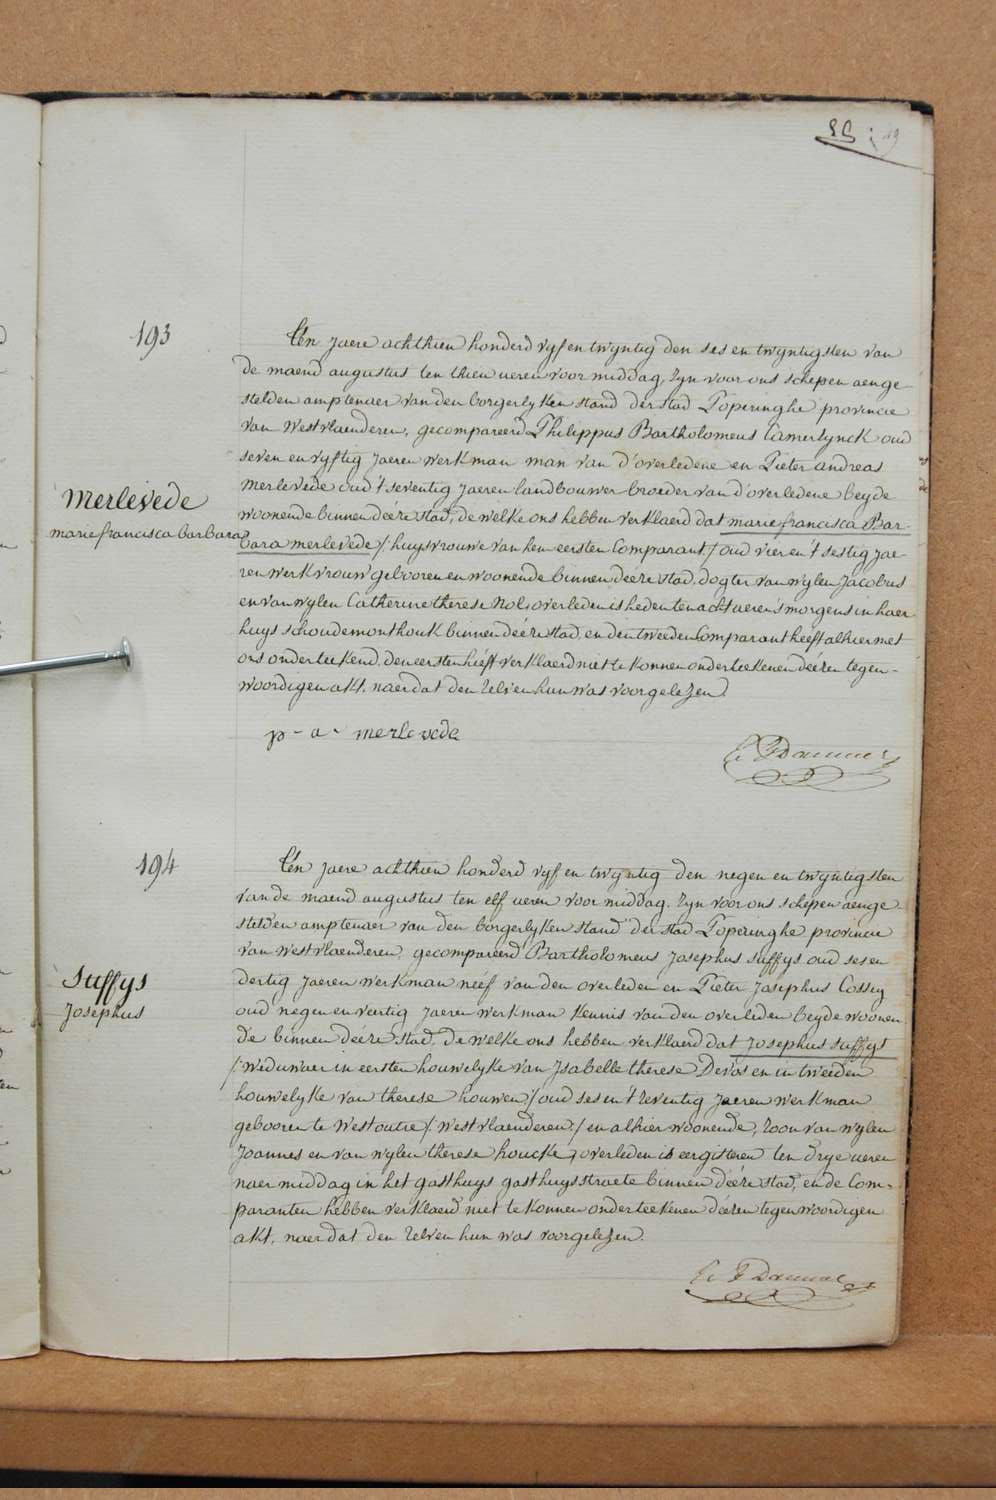 193
Merlevede
marie francisca barbara
Een jaere achthien honderd vyf en twyntig den ses en twyntigsten van
de maend augustus ten thien ueren voor middag, zyn voor ons schepen aenge-
stelden amptenaer van den borgerlyken stand der stad Poperinghe provincie
van Westvlaenderen, gecompareerd Philippus Bartholomeus Camerlynck oud
seven en vyftig jaeren werkman man van d'overledene en Pieter andreas
merlevede oud 't seventig jaeren landbouwer broeder van d'overledene beyde
woonende binnen deéze stad, de welke ons hebben verklaerd dat marie francisca Bar-
bara merlevede /: huysvrouwe van hem eersten Comparant :/ oud vier en 't sestig jae-
ren werkvrouw gebooren en woonende binnen deéze stad, dogter van wylen Jacobus
en van wylen Catherine therese Nol, overleden is heden ten acht ueren s'morgens in haer
huys schoudemonthouk binnen deéze stad, en den tweeden Comparant heeft alhier met
ons onderteekend, den eersten heéft verklaerd niet te konnen onderteekenen deézen tegen-
woordigen akt, naer dat den zelven hun was voorgelezen.
p - a - merlevede
194
Suffys
Josephus
Een jaere achthien honderd vyf en twyntig den negen en twyntigsten
van de maend augustus ten elf ueren voor middag, zyn voor ons schepen aenge-
stelden amptenaer van den borgerlyken stand der stad Poperinghe provincie
van westvlaenderen, gecompareerd Bartholomeus Josephus suffys oud ses en
dertig jaeren werkman neéf van den overleden en Pieter Josephus Cossey
oud negen en veertig jaeren werkman kennis van den overleden beyde woonen-
de binnen deéze stad, de welke ons hebben verklaerd dat Josephus suffys
/: weduwaer in eersten houwelyke van Isabelle therese Devos en in tweeden
houwelyke van therese houwen :/ oud ses en 't zeventig jaeren werkman
gebooren te Westoutre /: westvlaenderen :/ en alhier woonende, zoon van wylen
Joannes en van wylen therese houcke, overleden is eergisteren ten drye ueren
naer middag in het gasthuys gasthuysstraete binnen deéze stad, en de Com-
paranten hebben verklaerd niet te konnen onderteekenen deézen tegenwoordigen
akt, naer dat den zelven hun was voorgelezen.